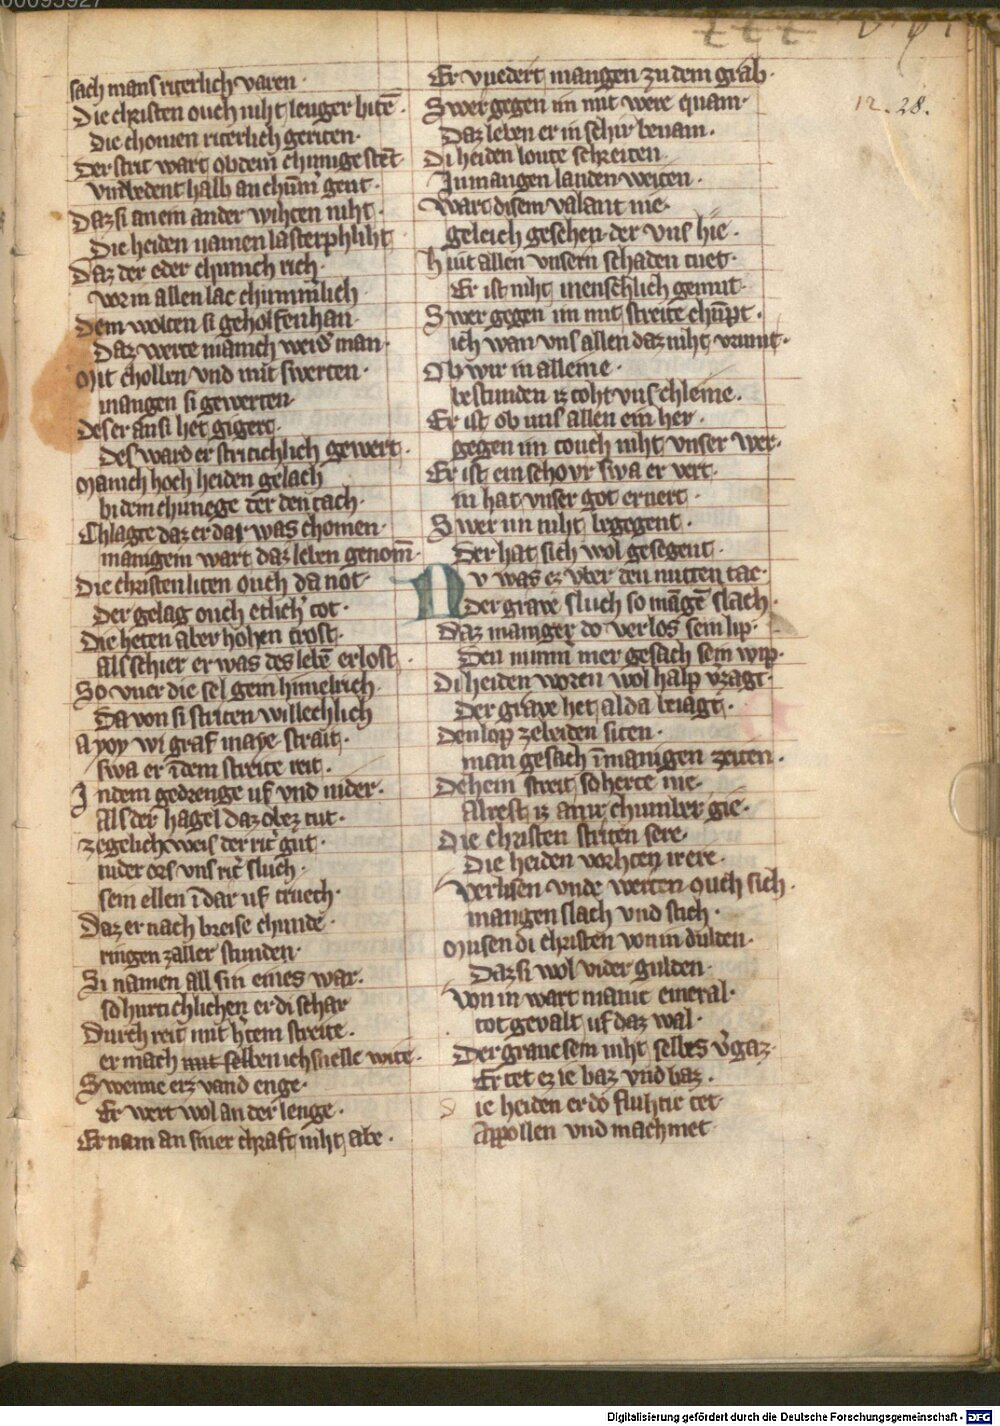 sach mans riterlich varen ·
Die christen ouch niht lenger bitē ·
Die chomen riterlich geriten ·
Der strit wart ob dem chunige
vnd edent halb an gent ·
Daz si an em ander wihten niht ·
Die heiden namen lasterphliht
Daz der eder chunich rich ·
vor in allen lac
Dem wolten si geholfen han ·
Daz werte manich werd man ·
Mit chollen vnd mit swerten ·
mangen si gewerten
Des er an si het gigert ·
Des ward er stritichlich gewert ·
Manich hoch heiden gelach
bi dem chunege der den tach ·
Chlagte daz er dar was chomen ·
manigem wart daz leben genom̄ ·
Die christen liten ouch da not ·
Der gelag ouch etlich tot ·
Die heten aber hohen trost ·
Als schier er was des lebē erlost ·
So vuer die sel gein himelrich
Da von si striten willechlich
Ayoy wi graf maye strait ·
swa er ī dem streite reit ·
In dem gedrenge uf vnd nider ·
Als der hagel daz obez tut ·
zegelich weis der rit̄ gut ·
nider ors vns rit̄ sluch ·
sein ellen ī dar uf truech ·
Daz er nach breise chunde ·
ringen zaller stunden ·
Si namen all sin eines war ·
so hurtichlichen er di schar
Durch reit mit h̄tem streite ·
er mach mit selben ich snelle wite ·
Swenne erz vand enge ·
Er wert wol an der lenge ·
Er nam an siner chraft niht abe ·
Er vuedert mangen zu dem grab ·
Swer gegen im mit were quam ·
Daz leben er in schir benam ·
Di heiden loute schreiten ·
In mangen landen weiten ·
Wart disem valant nie ·
geleich gesehen der vns hie ·
hiut allen vnsern schaden tuet ·
Er ist niht menschlich gemut ·
Swer gegen im mit streite chūpt ·
ich wan vns allen daz niht vrumt ·
Ob wir in alleine ·
bestunden iz toht vns chleine ·
Er ist ob uns allen ein her ·
gegen im touch niht vnser wer ·
Er ist ein schovr swa er vert ·
in hat vnser got ernert ·
Swer im niht begegent ·
Der hat sich wol gesegent ·
Nv was ez vber den mitten tac ·
Der grave sluch so māgē slach ·
Daz maniger do verlos sein lip ·
Den nimm̄ mer gesach sein wip ·
Di heiden woren wol halp vzagt ·
Der grave het alda beiagt ·
Den lop ze beiden siten ·
man gesach ī manigen zeiten ·
Dehein streit so herte nie ·
Alrest iz an chumber gie ·
Die christen striten sere ·
Die heiden vorhten ir ere ·
verlisen vnde werten ouch sich ·
mangen slach vnd stich ·
Musen di christen von in dulden ·
Daz si wol vider gulden ·
Von in wart manic eineral ·
tot gevalt uf daz wal ·
Der grave sein niht selbes v̄gaz ·
Er tet ez ie baz vnd baz ·
Sie heiden er do fluhtic tet ·
Appollen vnd machmet
12.28.
Digitalisierung gefördert durch die Deutsche Forschungsgemeinschaft - DFG